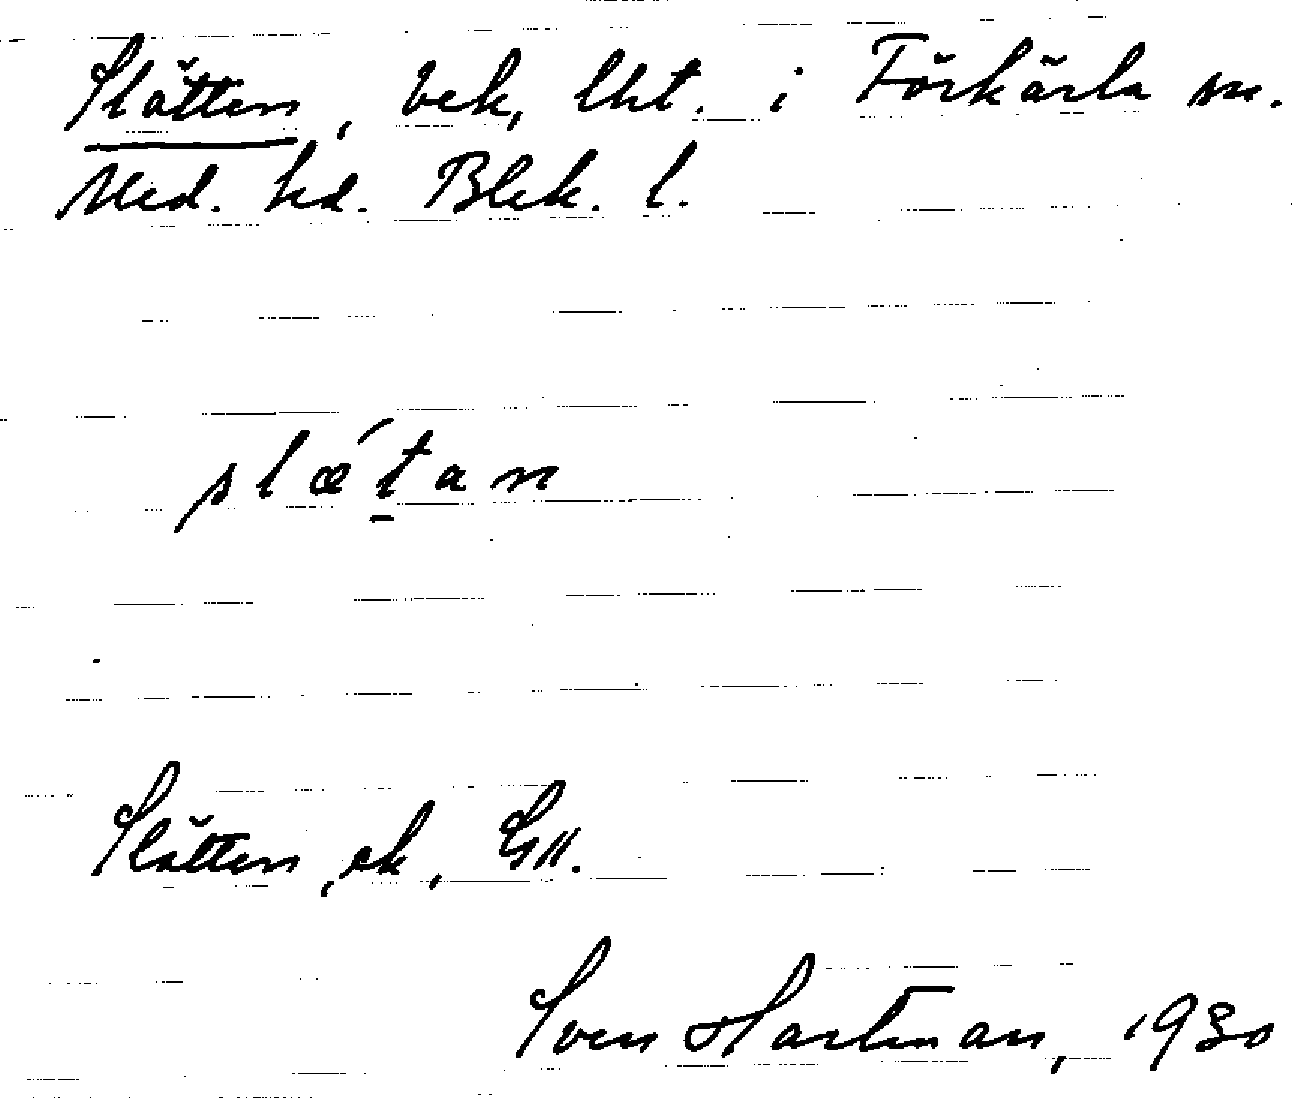 Slätten, bek, lht. i Förkärla sn.
Med. hd. Blek. l.
slæ´tan
Slätten, ek, GK.
Sven Hartman, 1930